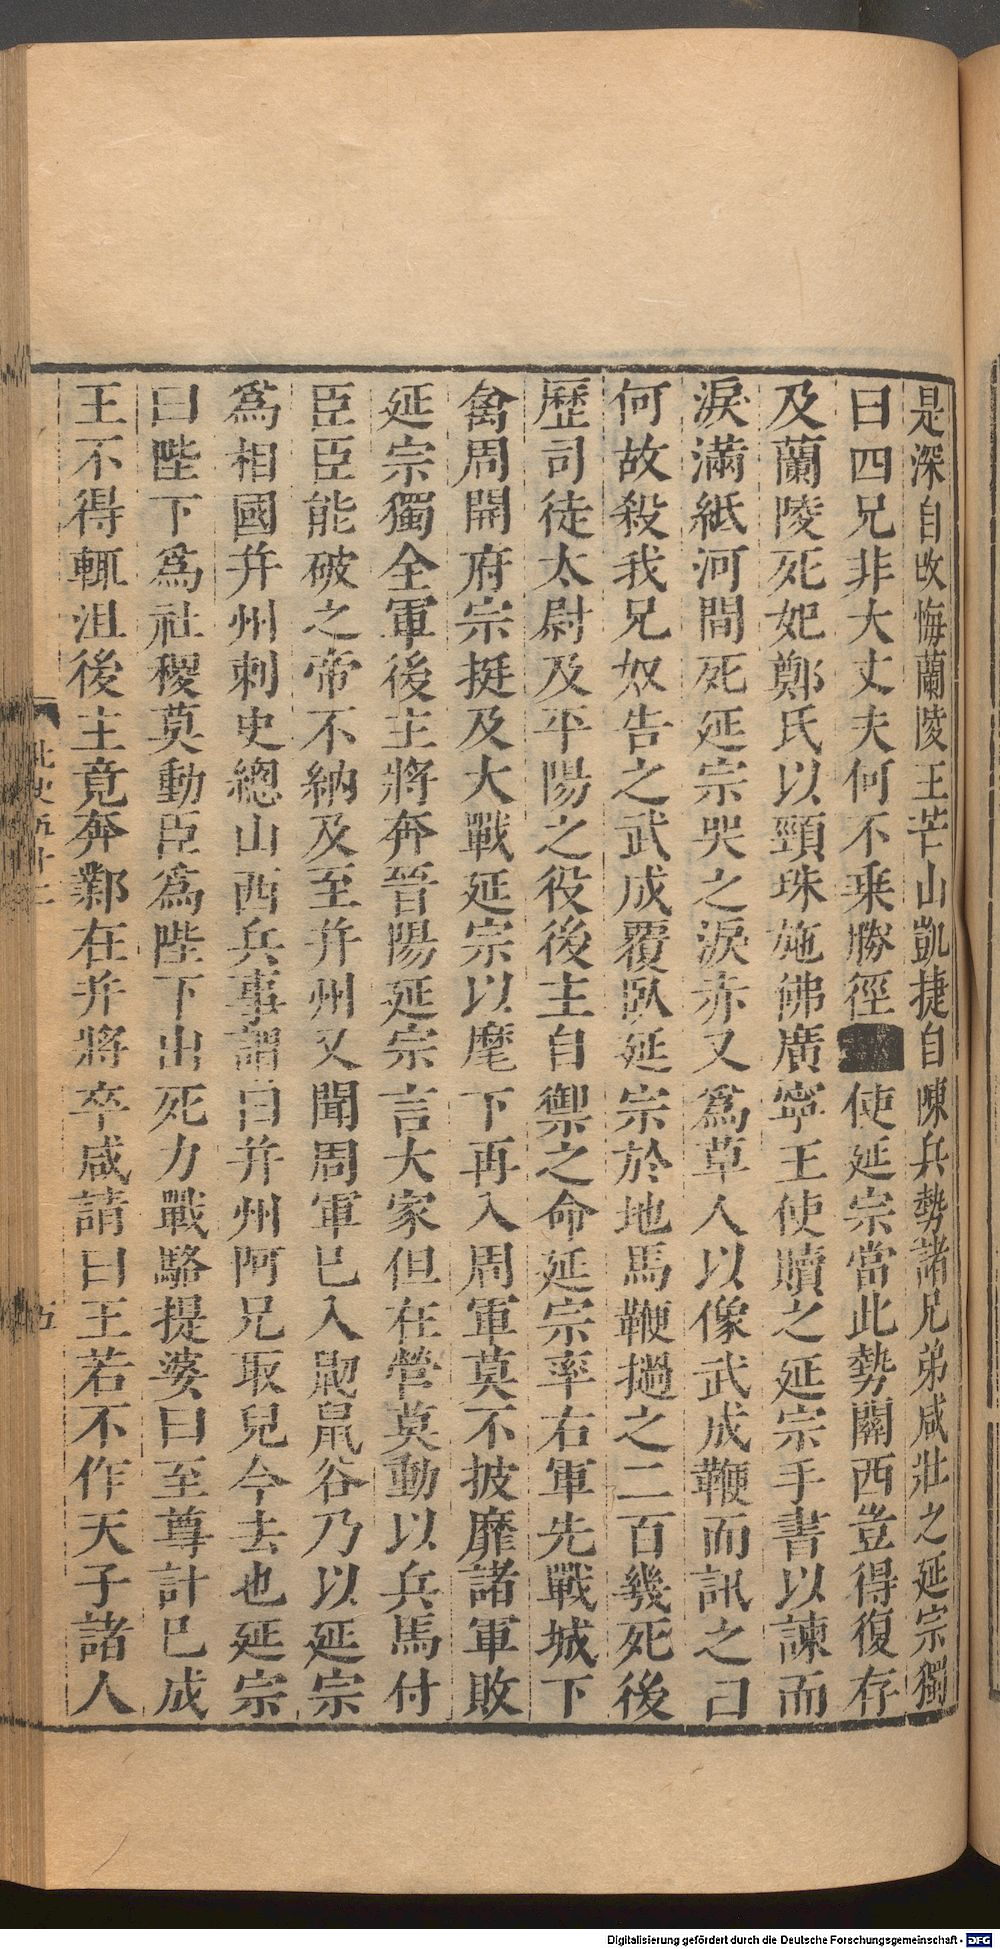 是深自改悔蘭陵王芒山凱捷自陳兵勢諸兄弟咸壯之延宗獨
曰四兄非大丈夫何不乗勝徑使延宗當此勢關西豈得復存
及蘭陵死妃鄭氏以頸珠施佛廣寧王使贖之延宗手書以諫而
淚滿紙河間死延宗哭之淚亦又爲草人以像武成鞭而訊之曰
何故殺我兄奴告之武成覆臥延宗於地馬鞭撾之二百幾死後
歷司徒太尉及平陽之役後主自禦之命延宗率右軍先戰城下
禽周開府宗挺及大戰延宗以麾下再入周軍莫不披靡諸軍敗
延宗獨全軍後主將奔晉陽延宗言大家但在營莫動以兵馬付
臣臣能破之帝不納及至并州又聞周軍已入䑕鼠谷乃以延宗
爲相國并州刺史總山西兵事謂曰并州阿兄取兒今去也延宗
曰陛下爲社稷莫動臣爲陛下出死力戰駱提婆曰至尊計已成
王不得輒沮後主竟奔鄴在并將卒咸請曰王若不作天子諸人
北史五十二
五
Digitalisierung gefördert durch die Deutsche Forschungsgemeinschaft - DFG